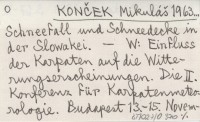 O KONČEK Mikuláš 1963...
Schneefall und Schneedecke in
der Slowakei. — W: Einfluss
der Karpaten auf die Witte-
rungserscheinungen. Die II.
Konferenz für Karpatenmeteo-
rologie. Budapest 13-15. Novem-